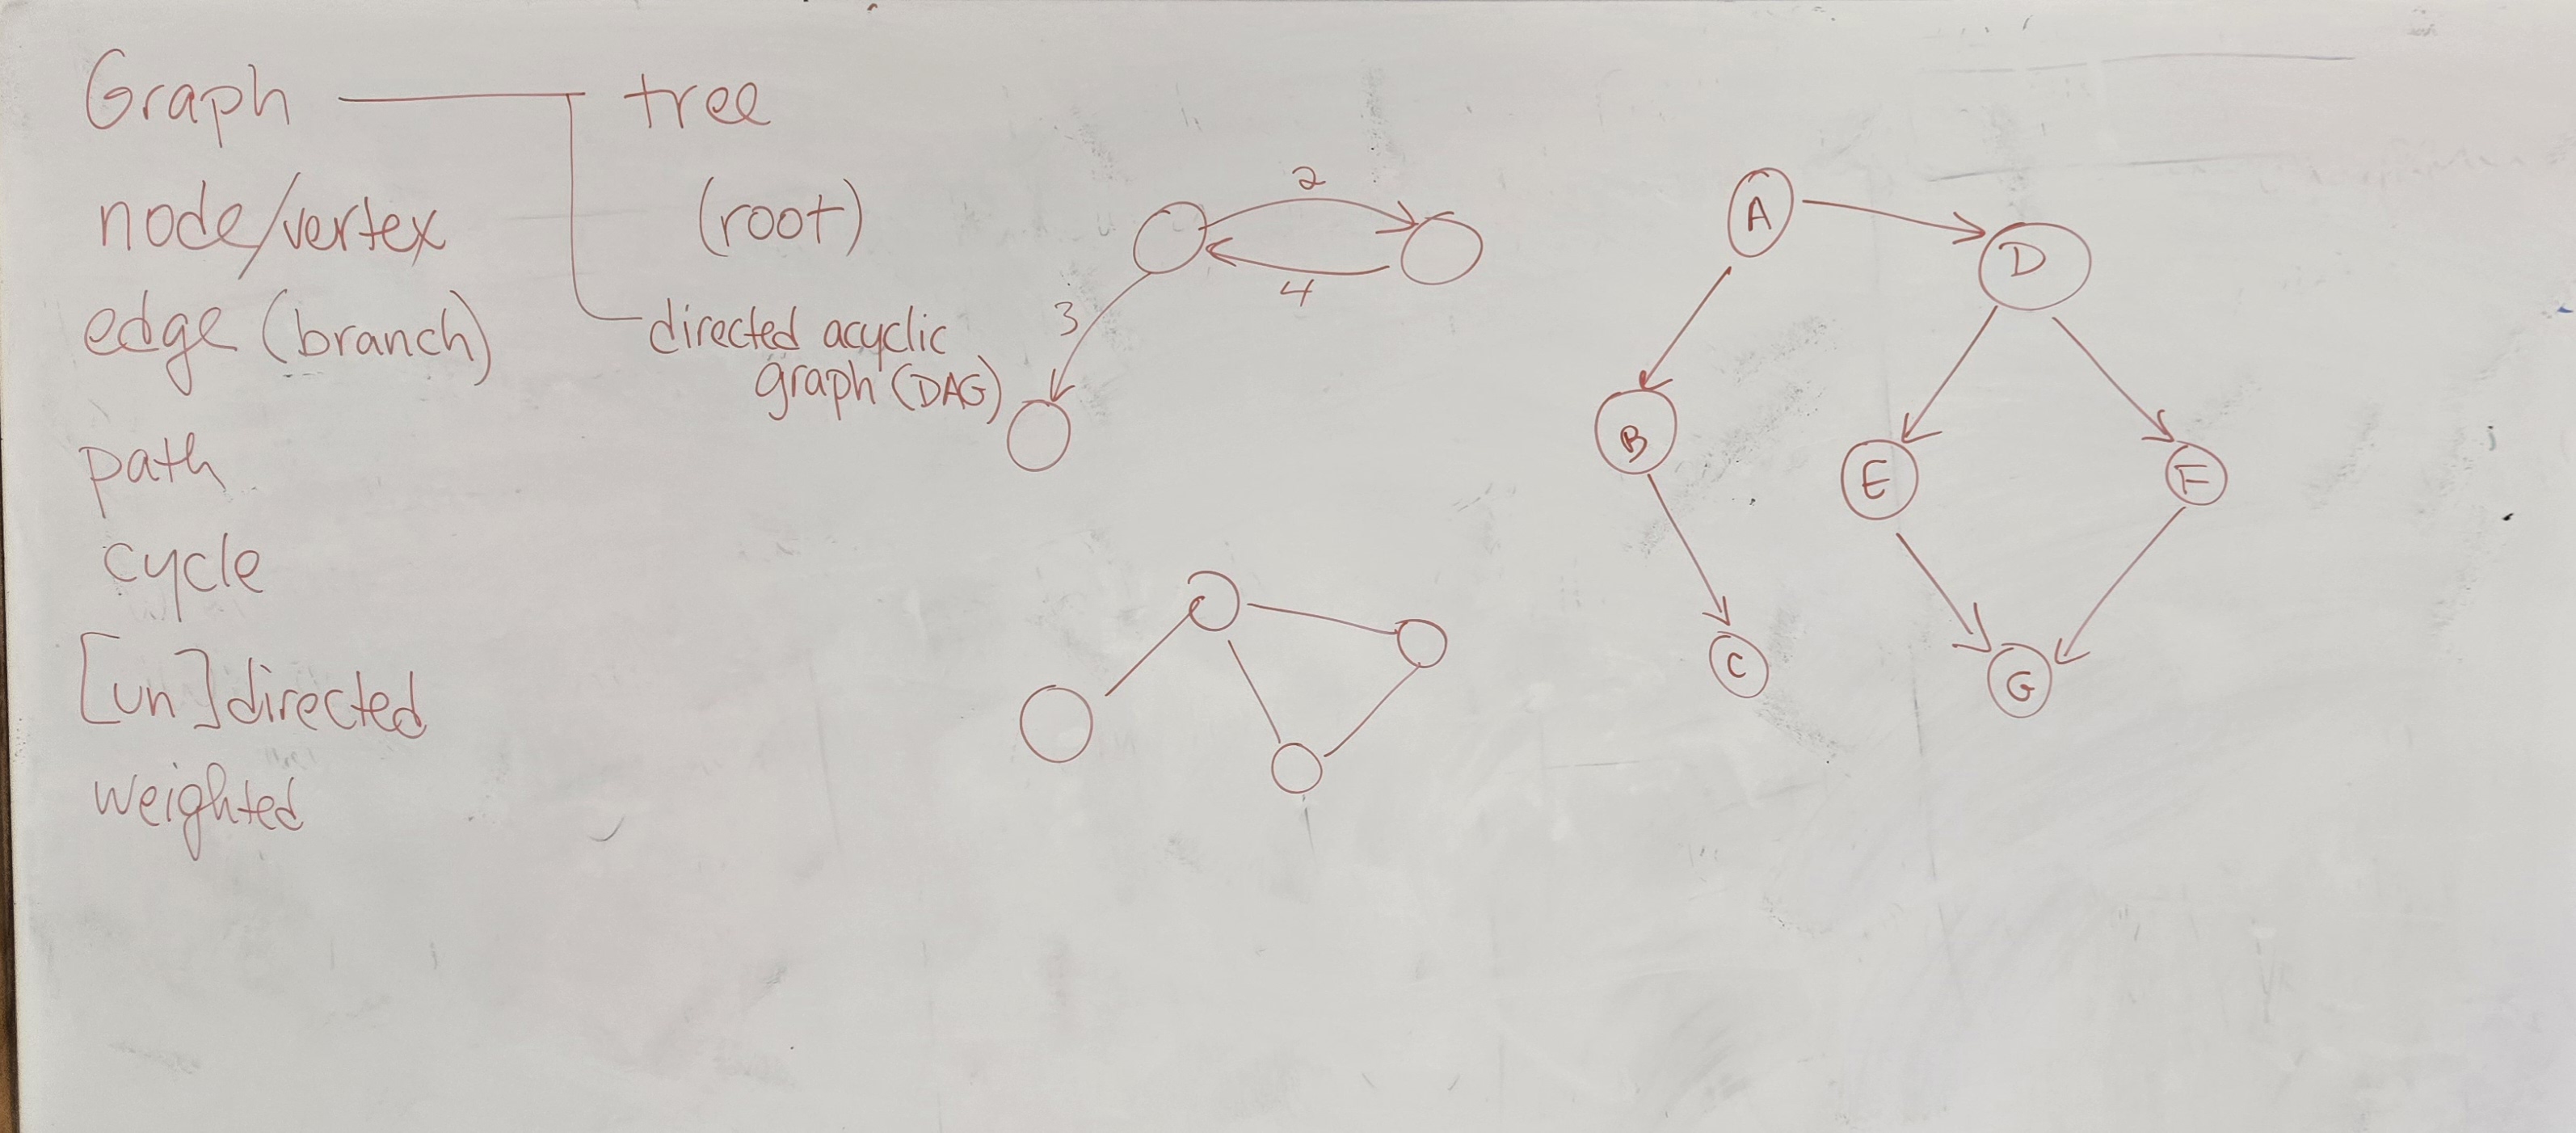 Graph
tree
node/vertex
(root)
edge (branch)
directed acyclic
graph (DAG)
path
cycle
[un]directed
weighted
2
4
3
A
D
B
E
F
C
G